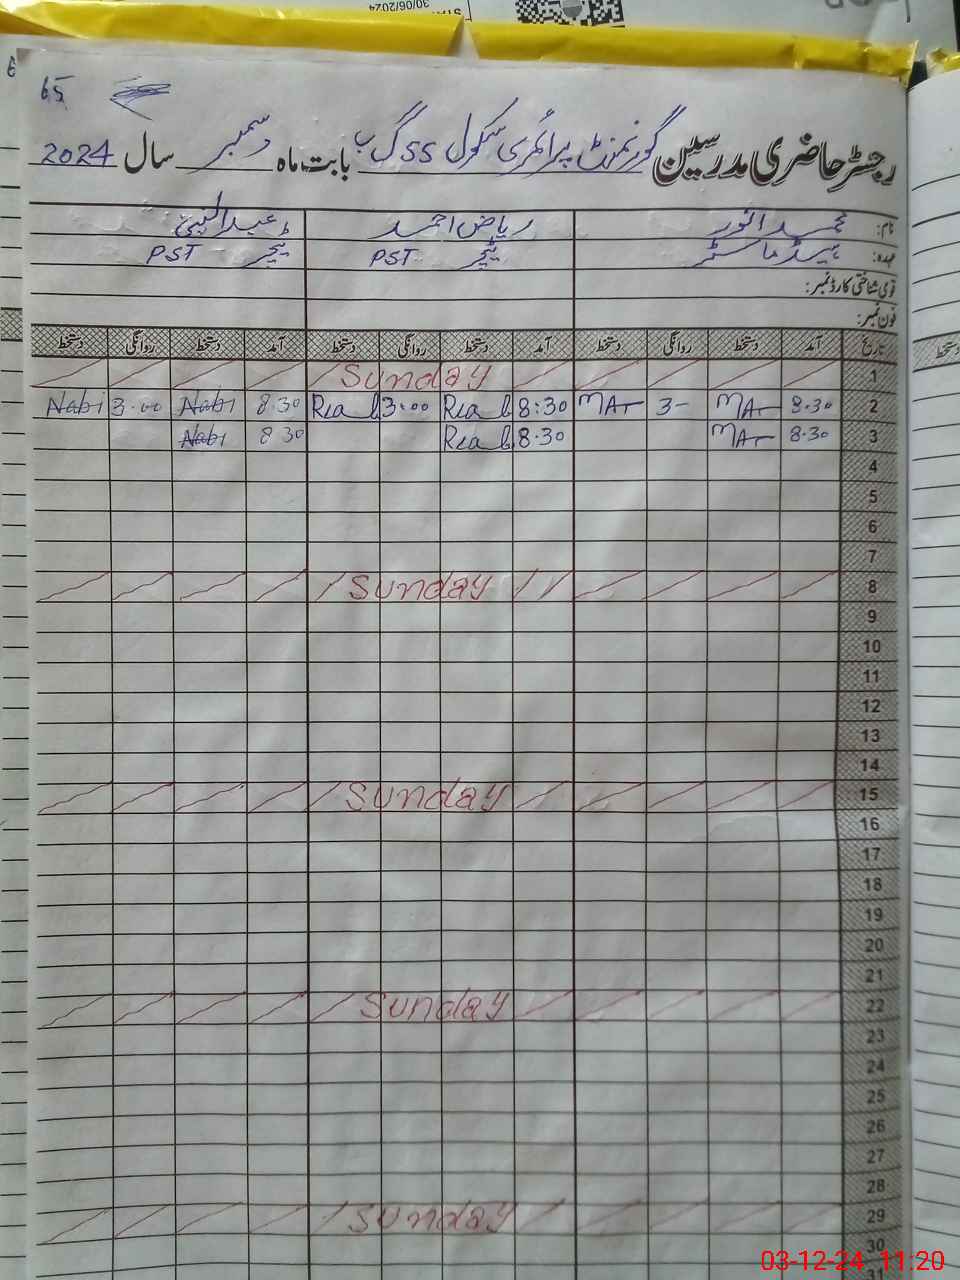 30/06/2024
65
رجسٹر حاضری مدرسین گورنمنٹ پرائمری سکول 55 گ ب بابت ماہ دسمبر سال 2024
نام: محمد انور ریاض احمد عبدالنبی
عہدہ: ہیڈ ماسٹر ٹیچر PST ٹیچر PST
قومی شناختی کارڈ نمبر:
فون نمبر:
تاریخ آمد دستخط روانگی دستخط آمد دستخط روانگی دستخط آمد دستخط روانگی دستخط
1 Sunday
2 8.30 3- 8:30 3:00 8.30 Nabi 3.00 Nabi
3 8.30 8:30 8.30 Nabi
4
5
6
7
8 Sunday
9
10
11
12
13
14
15 Sunday
16
17
18
19
20
21
22 Sunday
23
24
25
26
27
28
29 Sunday
30
31
دستخط
03-12-24 11:20